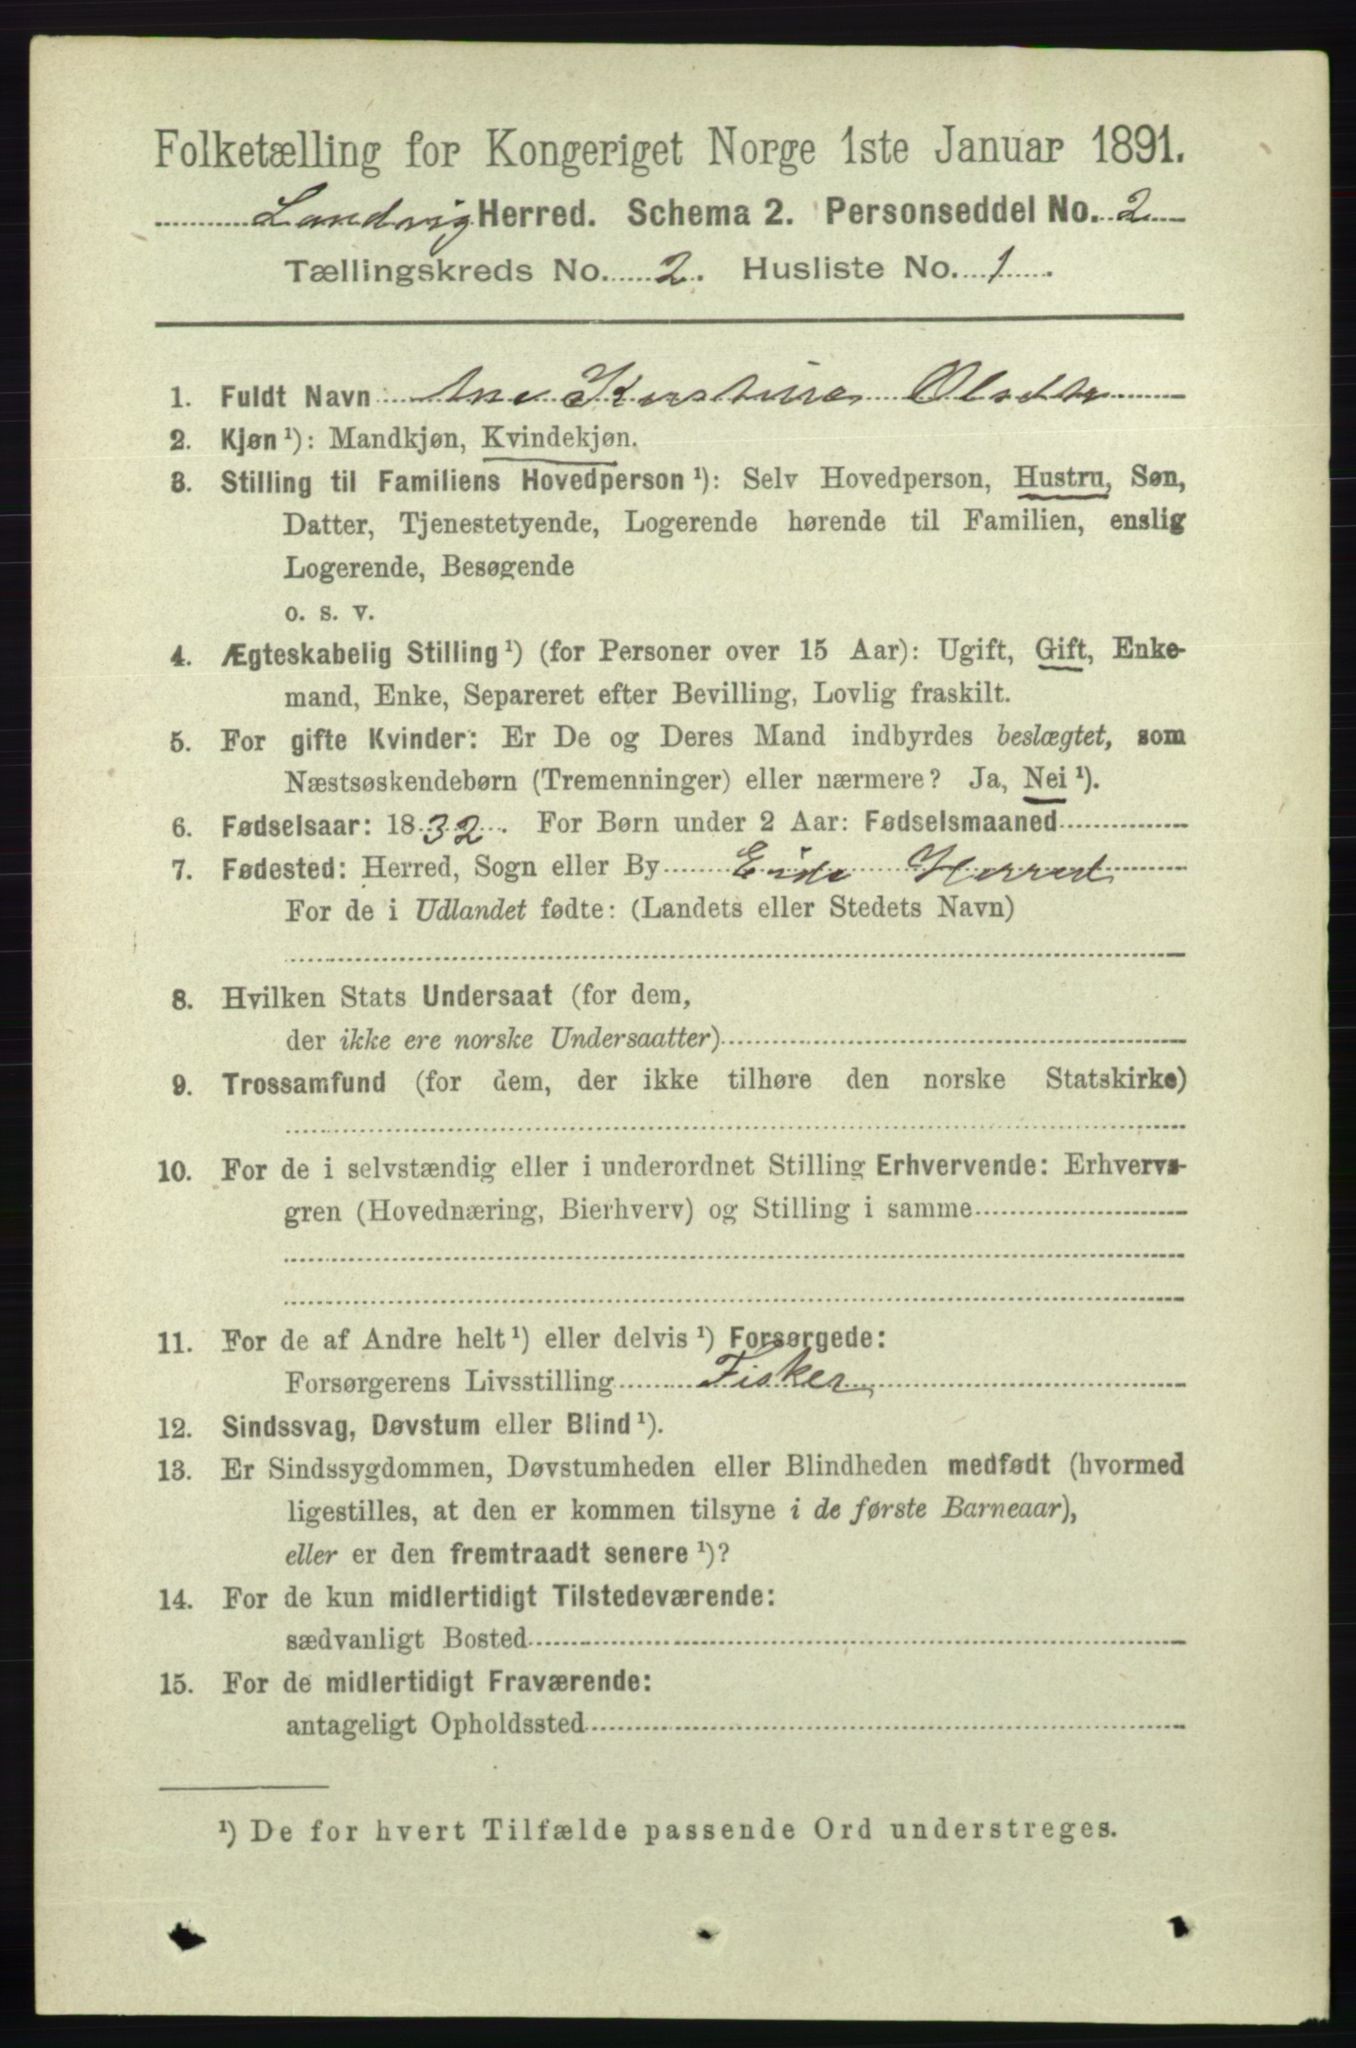 Folketælling for Kongeriget Norge 1ste Januar 1891.
Landvig Herred. Schema 2. Personseddel No. 2
Tællingskreds No. 2. Husliste No. 1.
1. Fuldt Navn Ane Kirstine Olsdtr
2. Kjøn ¹): Mandkjøn, Kvindekjøn.
3. Stilling til Familiens Hovedperson ¹): Selv Hovedperson, Hustru, Søn,
Datter, Tjenestetyende, Logerende hørende til Familien, enslig
Logerende, Besøgende
o. s. v.
4. Ægteskabelig Stilling ¹) (for Personer over 15 Aar): Ugift, Gift, Enke-
mand, Enke, Separeret efter Bevilling, Lovlig fraskilt.
5. For gifte Kvinder: Er De og Deres Mand indbyrdes beslægtet, som
Næstsøskendebørn (Tremenninger) eller nærmere? Ja, Nei ¹).
6. Fødselsaar: 1832. For Børn under 2 Aar: Fødselsmaaned
7. Fødested: Herred, Sogn eller By Eide Herred
For de i Udlandet fødte: (Landets eller Stedets Navn)
8. Hvilken Stats Undersaat (for dem,
der ikke ere norske Undersaatter)
9. Trossamfund (for dem, der ikke tilhøre den norske Statskirke)
10. For de i selvstændig eller i underordnet Stilling Erhvervende: Erhvervs-
gren (Hovednæring, Bierhverv) og Stilling i samme
11. For de af Andre helt ¹) eller delvis ¹) Forsørgede:
Forsørgerens Livsstilling Fisker
12. Sindssvag, Døvstum eller Blind ¹).
13. Er Sindssygdommen, Døvstumheden eller Blindheden medfødt (hvormed
ligestilles, at den er kommen tilsyne i de første Barneaar),
eller er den fremtraadt senere ¹)?
14. For de kun midlertidigt Tilstedeværende:
sædvanligt Bosted
15. For de midlertidigt Fraværende:
antageligt Opholdssted
¹) De for hvert Tilfælde passende Ord understreges.